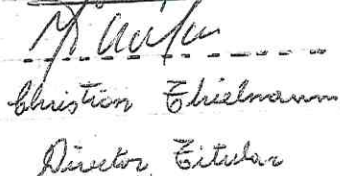 Christian Thielmann
Director Titular